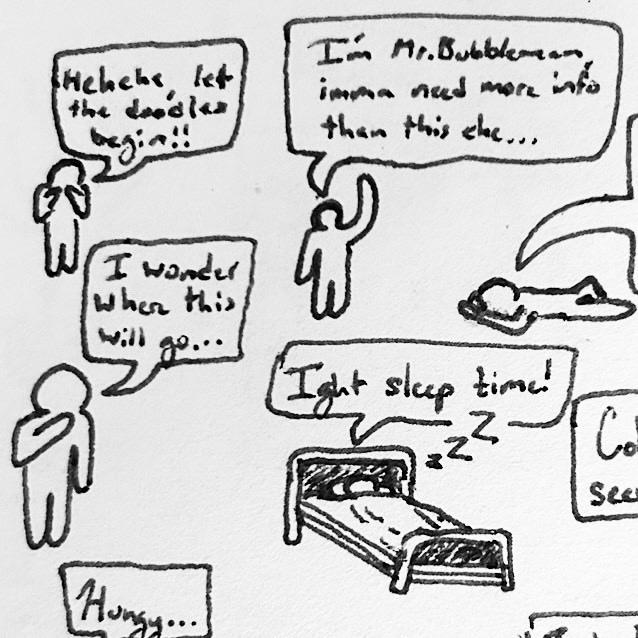 Hehehe, let
the doodles
begin!!
I'm Mr.Bubbleman,
imma need more info
than this che...
I wonder
where this
will go...
Ight sleep time!
z z Z
Hungy...
see